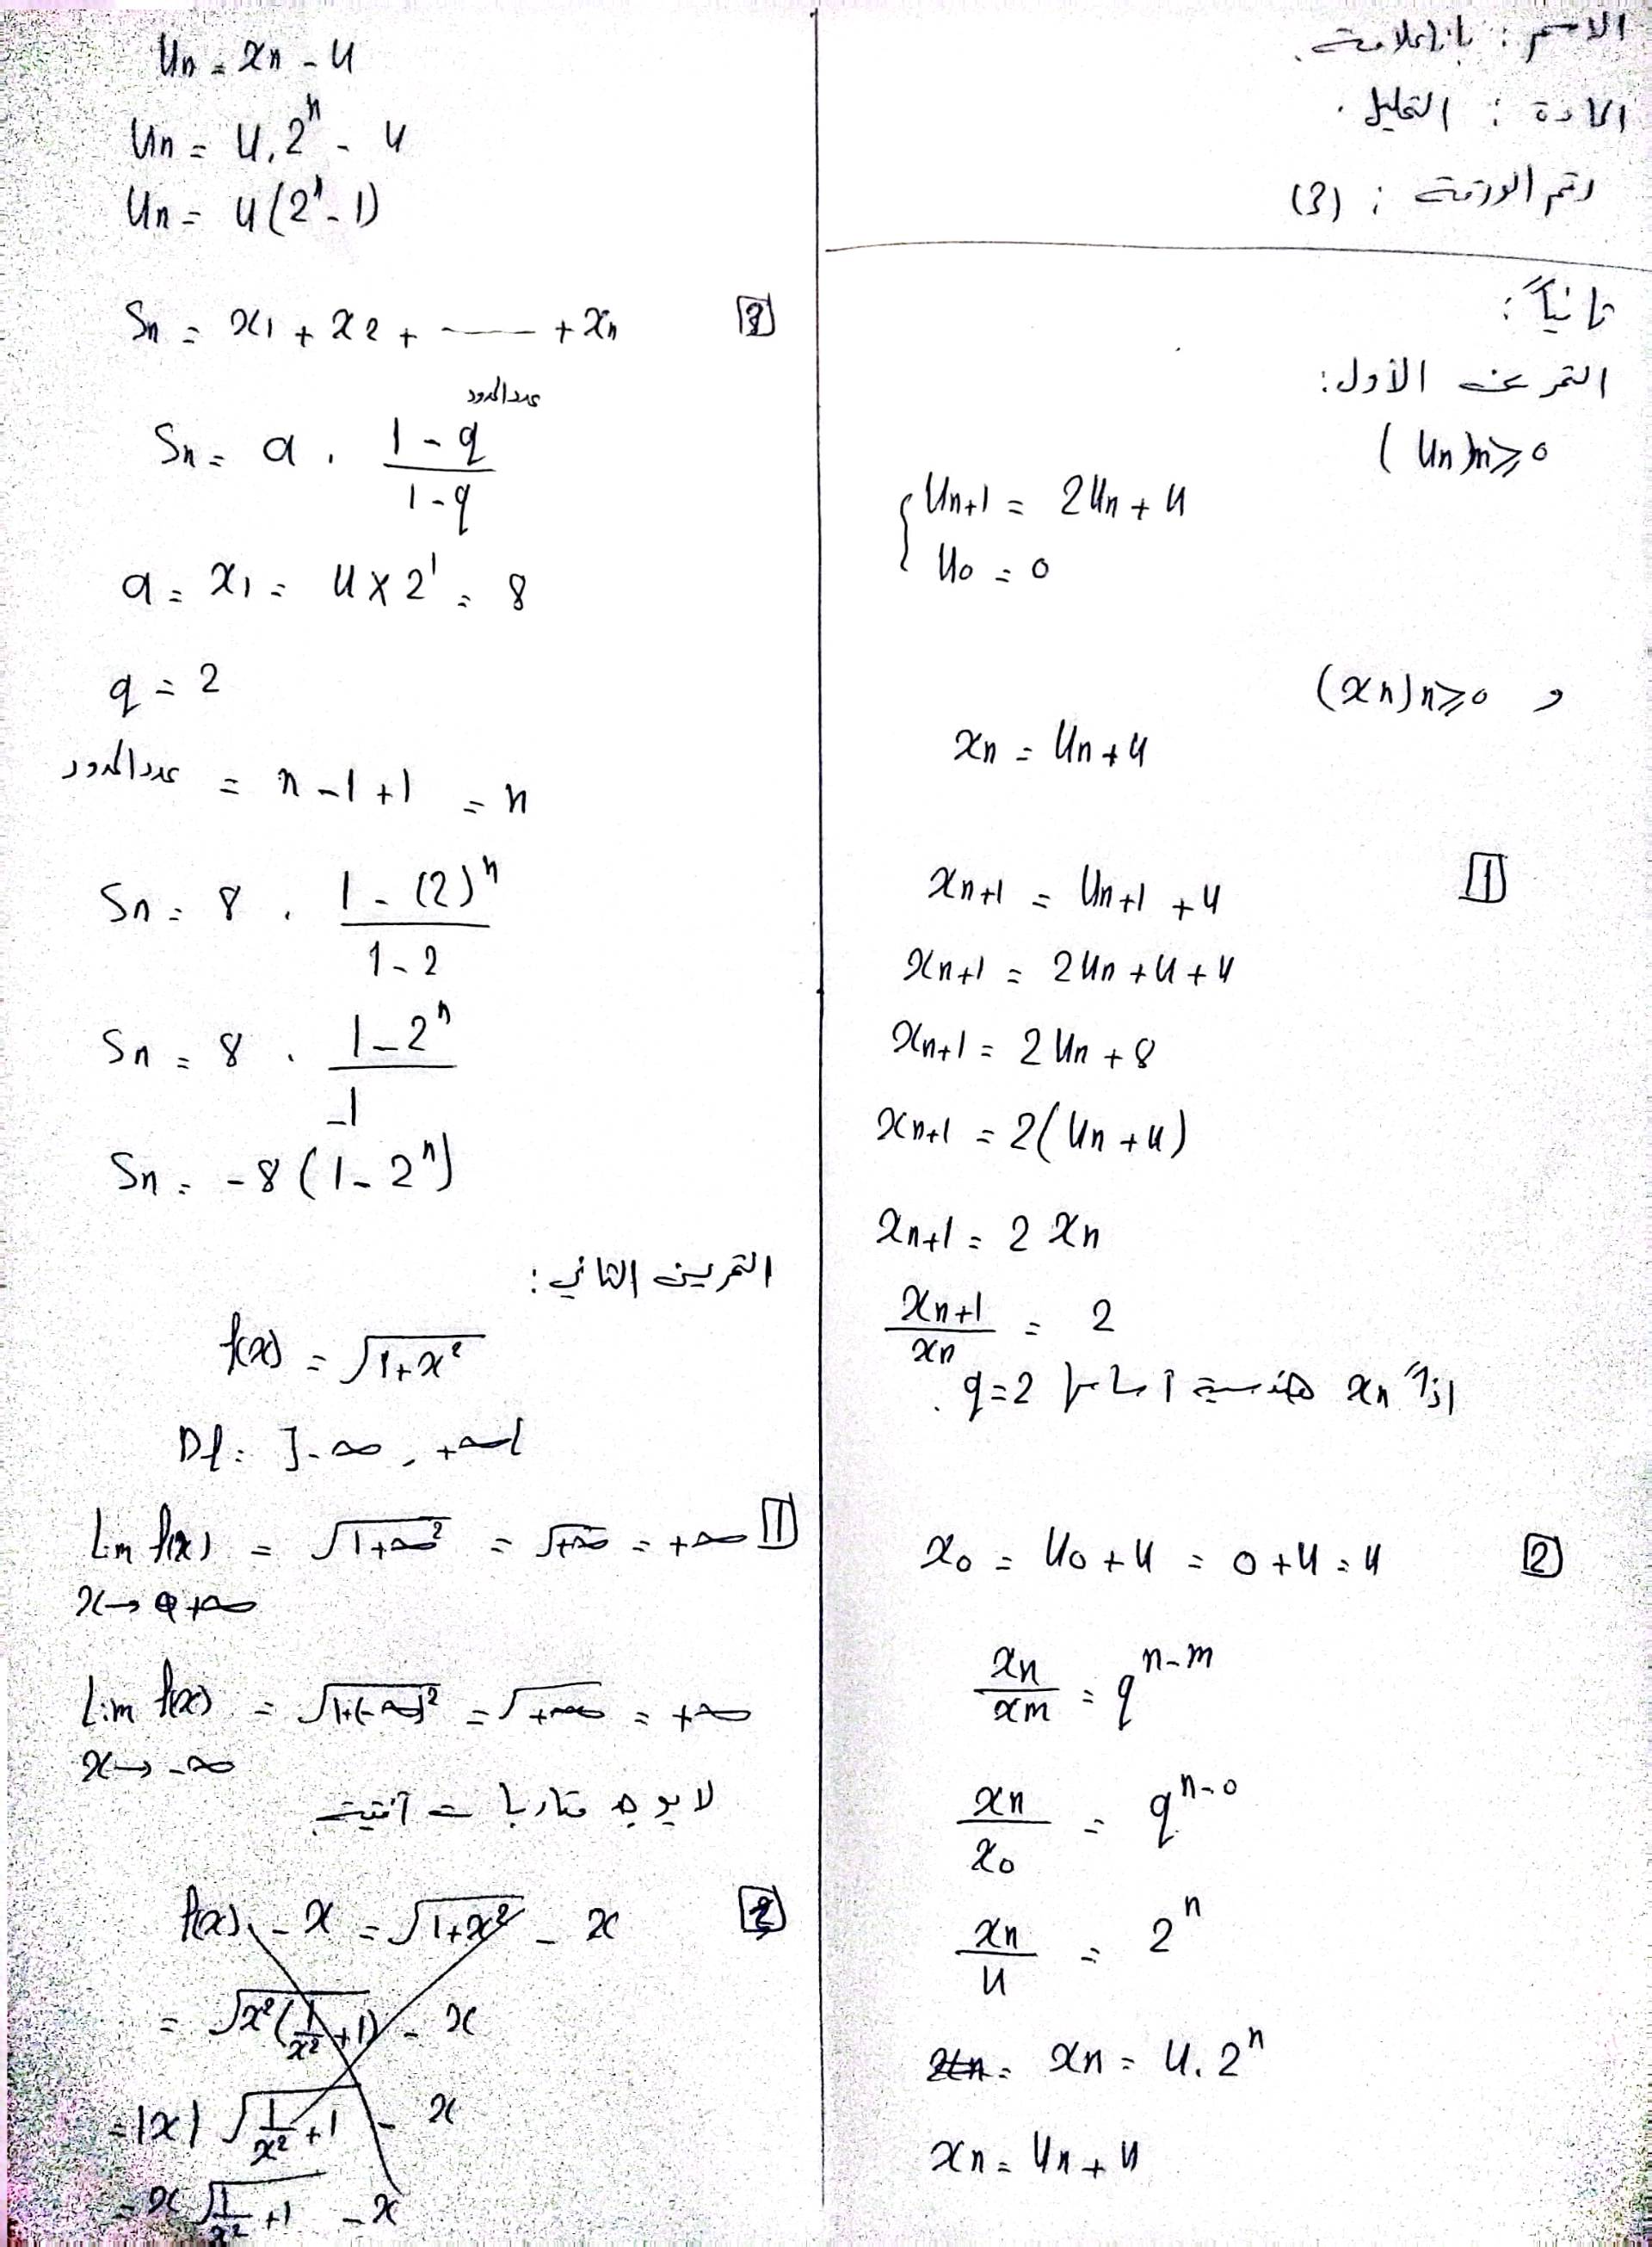 الاسم : يانا علامة.
المادة : التحليل.
رقم الورقة : (3)
ثانياً :
التمرين الأول:
(Un)n≥0
{ Un+1 = 2Un + 4
U0 = 0
و (xn)n≥0
xn = Un + 4
[1] xn+1 = Un+1 + 4
xn+1 = 2Un + 4 + 4
xn+1 = 2Un + 8
xn+1 = 2(Un + 4)
xn+1 = 2 xn
xn+1 / xn = 2
اذاً xn هندسية أساسها q=2 .
[2] x0 = U0 + 4 = 0 + 4 = 4
xn / xm = q^(n-m)
xn / x0 = q^(n-0)
xn / 4 = 2^n
xn = xn = 4.2^n
xn = Un + 4
Un = xn - 4
Un = 4.2^n - 4
Un = 4(2^n - 1)
[3] Sn = x1 + x2 + —— + xn
Sn = a . (1 - q^عدد الحدود) / (1 - q)
a = x1 = 4 × 2^1 = 8
q = 2
عدد الحدود = n - 1 + 1 = n
Sn = 8 . (1 - (2)^n) / (1 - 2)
Sn = 8 . (1 - 2^n) / -1
Sn = -8(1 - 2^n)
التمرين الثاني :
f(x) = √(1+x²)
Df = ]-∞ , +∞[
[1] Lim f(x) = √(1+∞²) = √(+∞) = +∞
x→+∞
Lim f(x) = √(1+(-∞)²) = √(+∞) = +∞
x→-∞
لا يوجد مقاربات أفقية.
[2] f(x) - x = √(1+x²) - x
= √(x²(1/x² + 1)) - x
= |x| √(1/x² + 1) - x
= x √(1/x² + 1) - x